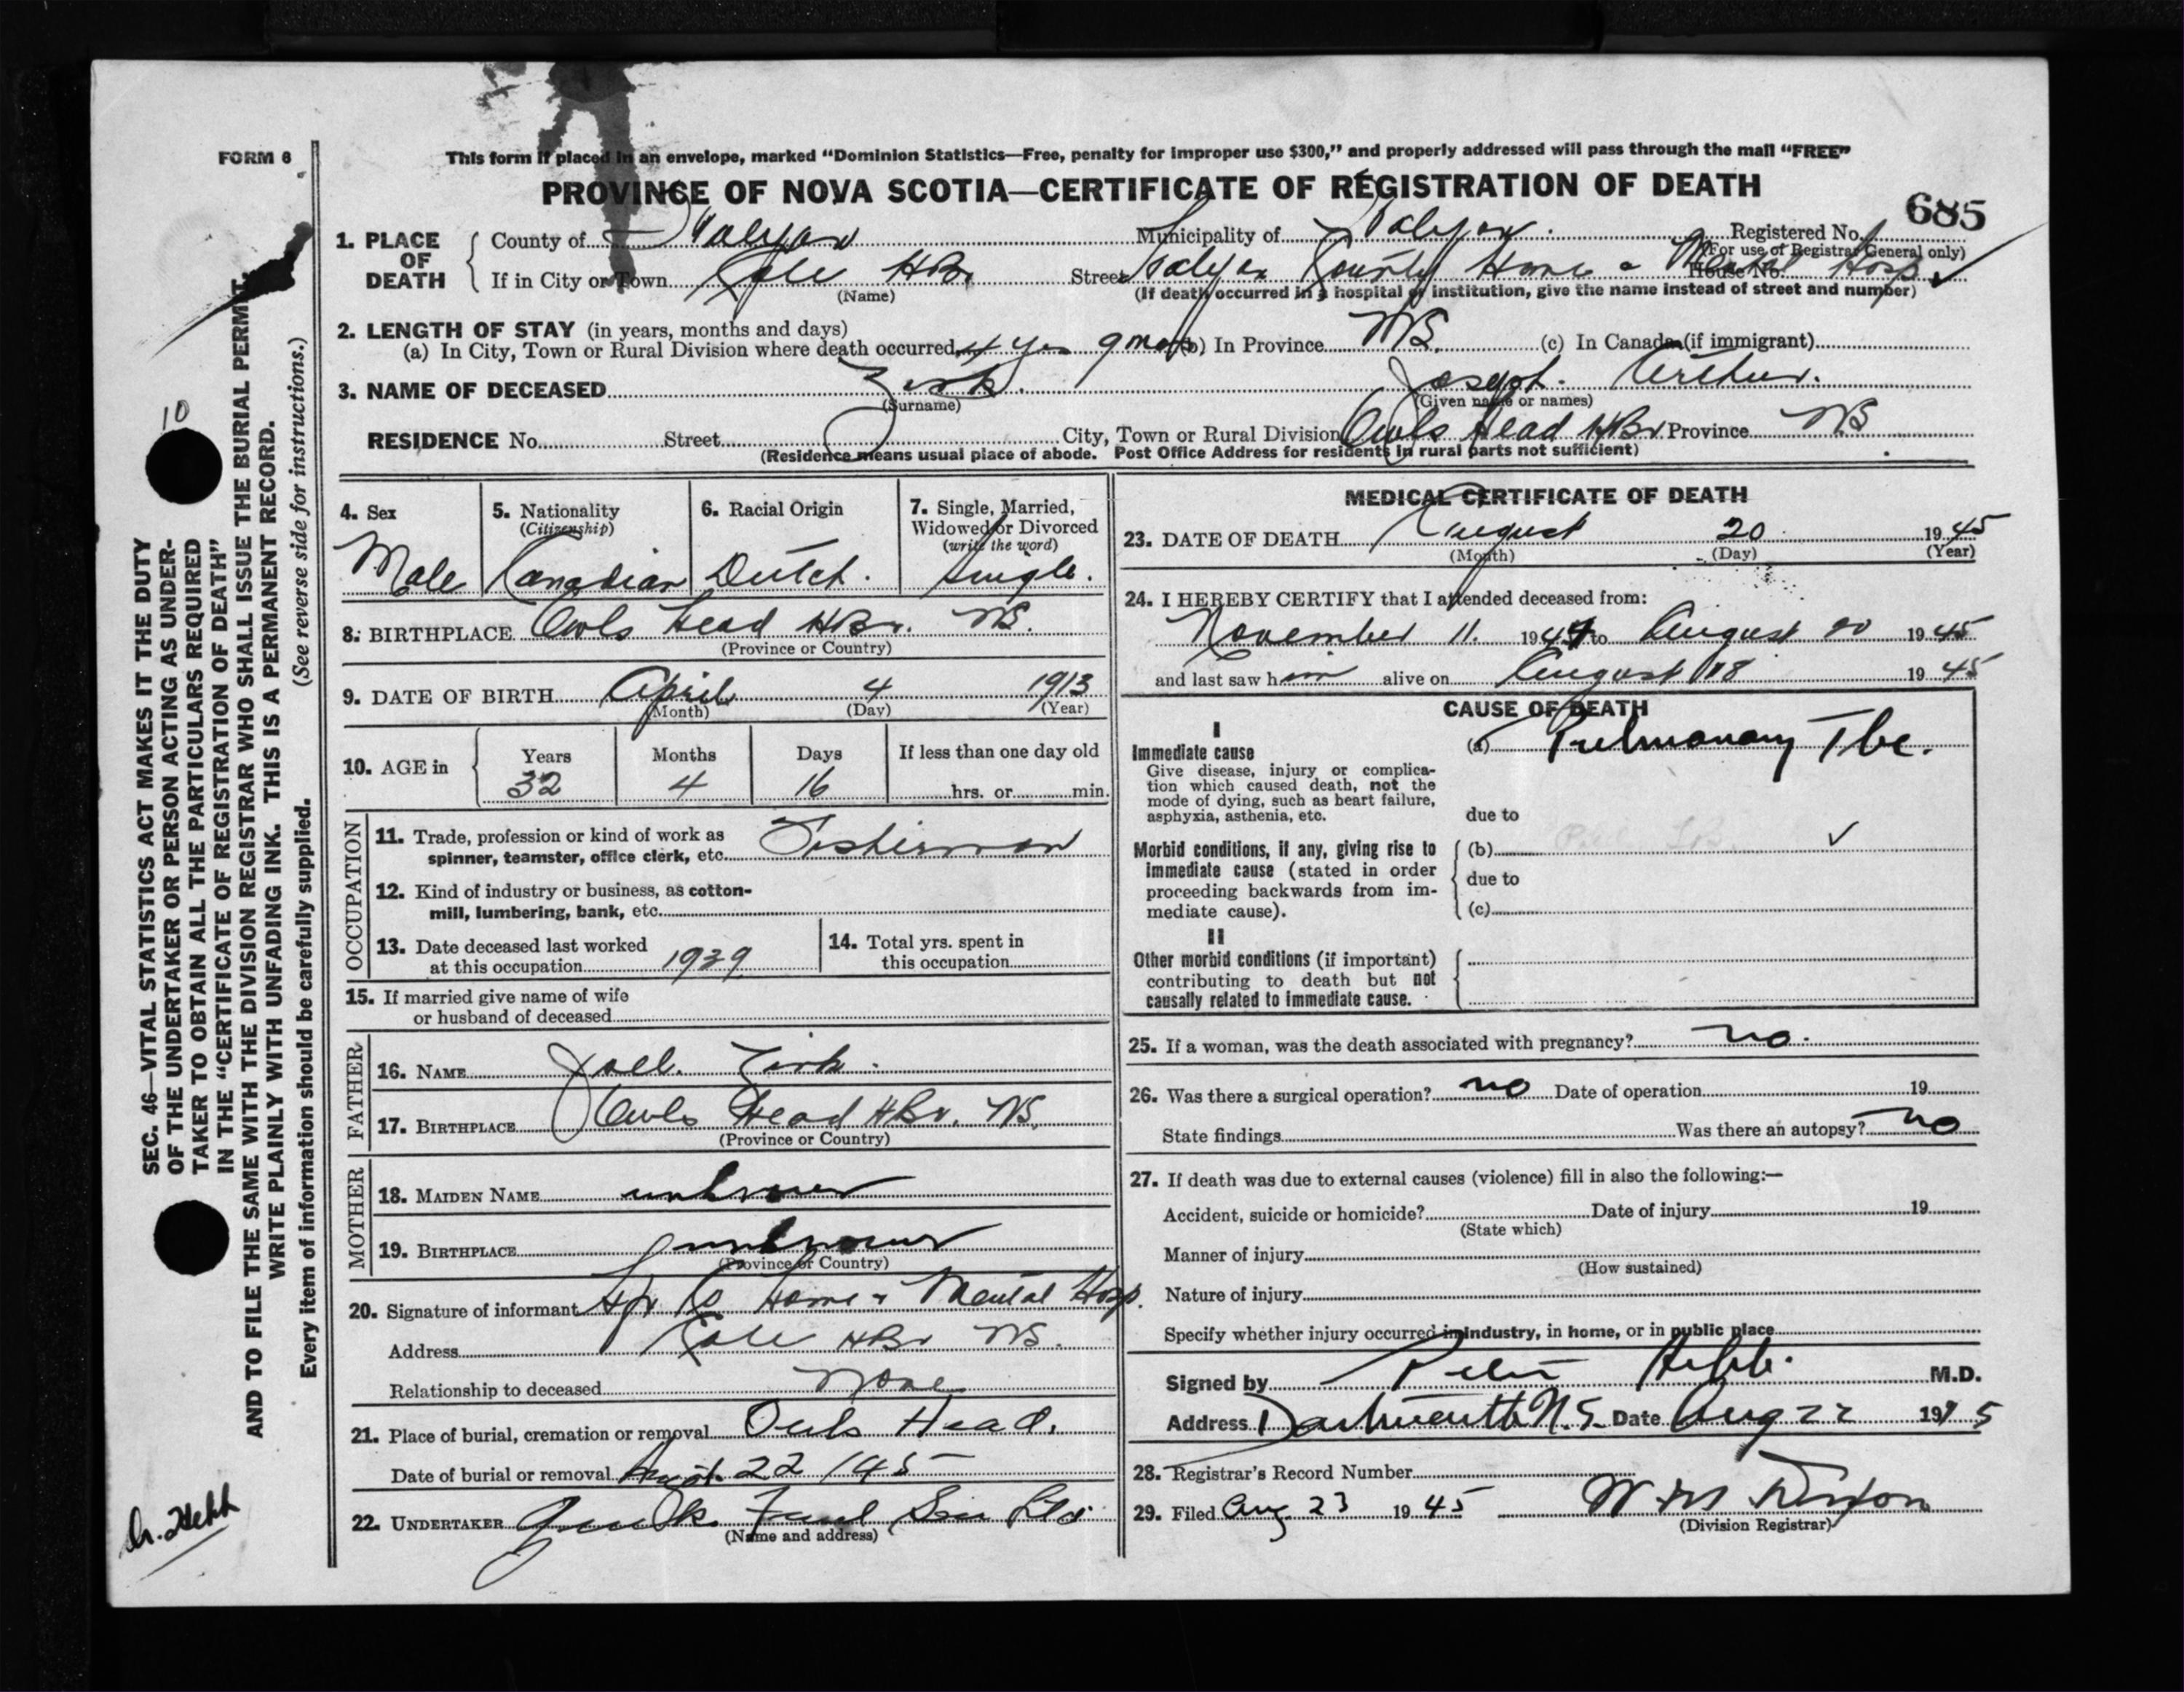 FORM 6
This form if placed in an envelope, marked “Dominion Statistics—Free, penalty for improper use $300,” and properly addressed will pass through the mail “FREE”
PROVINCE OF NOVA SCOTIA—CERTIFICATE OF REGISTRATION OF DEATH
685
1. PLACE OF DEATH
County of Halifax Municipality of Halifax Registered No.
(For use of Registrar General only)
If in City or Town Cole HBr Street Halifax County Home & Mental Hosp House No.
(Name) (If death occurred in a hospital or institution, give the name instead of street and number)
2. LENGTH OF STAY (in years, months and days)
(a) In City, Town or Rural Division where death occurred 4 yrs 9 mos (b) In Province NS. (c) In Canada (if immigrant)
3. NAME OF DECEASED Zink. Joseph. Arthur.
(Surname) (Given name or names)
RESIDENCE No. Street City, Town or Rural Division Owls Head HBr Province NS
(Residence means usual place of abode. Post Office Address for residents in rural parts not sufficient)
4. Sex
Male
5. Nationality
(Citizenship)
Canadian
6. Racial Origin
Dutch.
7. Single, Married,
Widowed or Divorced
(write the word)
Single.
8. BIRTHPLACE Owls Head HBr. NS.
(Province or Country)
9. DATE OF BIRTH April 4 1913
(Month) (Day) (Year)
10. AGE in
Years Months Days If less than one day old
32 4 16 hrs. or min.
OCCUPATION
11. Trade, profession or kind of work as
spinner, teamster, office clerk, etc. Fisherman
12. Kind of industry or business, as cotton-
mill, lumbering, bank, etc.
13. Date deceased last worked
at this occupation 1939
14. Total yrs. spent in
this occupation
15. If married give name of wife
or husband of deceased
FATHER
16. NAME Joel. Zink.
17. BIRTHPLACE Owls Head HBr. NS.
(Province or Country)
MOTHER
18. MAIDEN NAME unknown
19. BIRTHPLACE unknown
(Province or Country)
20. Signature of informant Hfx Co Home & Mental Hosp.
Address Cole HBr NS.
Relationship to deceased None
21. Place of burial, cremation or removal Owls Head.
Date of burial or removal 22 1945
22. UNDERTAKER
(Name and address)
MEDICAL CERTIFICATE OF DEATH
23. DATE OF DEATH August 20 1945
(Month) (Day) (Year)
24. I HEREBY CERTIFY that I attended deceased from:
November 11. 1944 to August 20 1945
and last saw him alive on August 18 1945
CAUSE OF DEATH
I
Immediate cause
Give disease, injury or complica-
tion which caused death, not the
mode of dying, such as heart failure,
asphyxia, asthenia, etc.
(a) Pulmonary Tbc.
due to
Morbid conditions, if any, giving rise to
immediate cause (stated in order
proceeding backwards from im-
mediate cause).
(b)
due to
(c)
II
Other morbid conditions (if important)
contributing to death but not
causally related to immediate cause.
25. If a woman, was the death associated with pregnancy? no.
26. Was there a surgical operation? no Date of operation 19
State findings Was there an autopsy? no
27. If death was due to external causes (violence) fill in also the following:—
Accident, suicide or homicide? Date of injury 19
(State which)
Manner of injury
(How sustained)
Nature of injury
Specify whether injury occurred in industry, in home, or in public place
Signed by Peter Hebb. M.D.
Address Dartmouth N.S. Date Aug 22 1945
28. Registrar's Record Number
29. Filed Aug 23 1945
(Division Registrar)
SEC. 46—VITAL STATISTICS ACT MAKES IT THE DUTY
OF THE UNDERTAKER OR PERSON ACTING AS UNDER-
TAKER TO OBTAIN ALL THE PARTICULARS REQUIRED
IN THE “CERTIFICATE OF REGISTRATION OF DEATH”
AND TO FILE THE SAME WITH THE DIVISION REGISTRAR WHO SHALL ISSUE THE BURIAL PERMIT.
WRITE PLAINLY WITH UNFADING INK. THIS IS A PERMANENT RECORD.
Every item of information should be carefully supplied. (See reverse side for instructions.)
10
Dr. Hebb